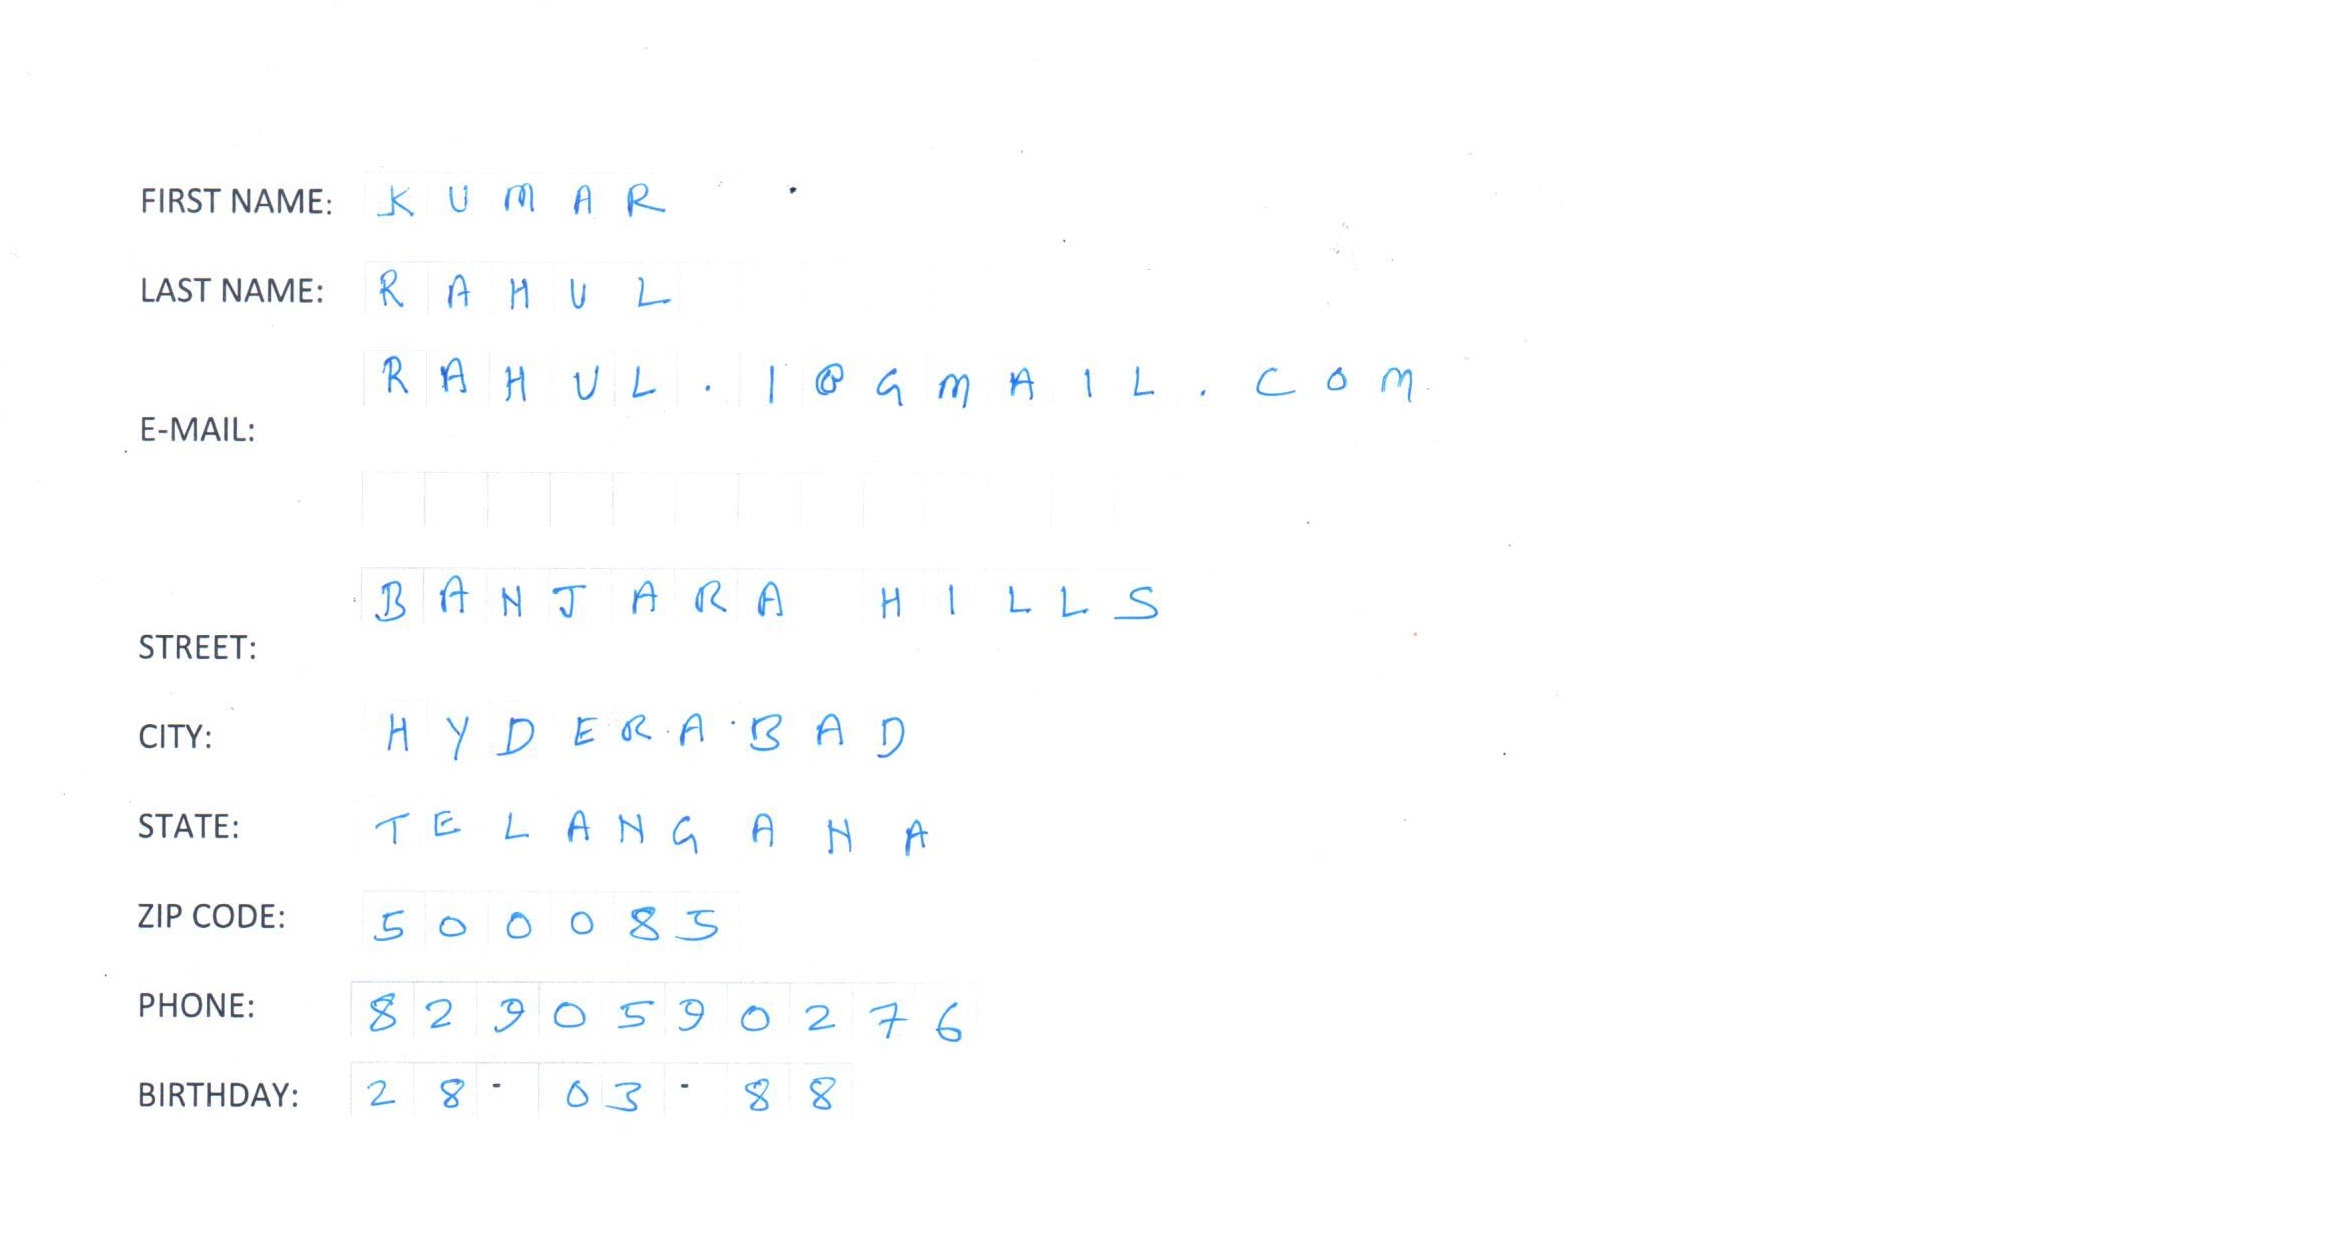 FIRST NAME: KUMAR
LAST NAME: RAHUL
E-MAIL: RAHUL.1@GMAIL.COM
STREET: BANJARA HILLS
CITY: HYDERABAD
STATE: TELANGANA
ZIP CODE: 500085
PHONE: 8290590276
BIRTHDAY: 28-03-88